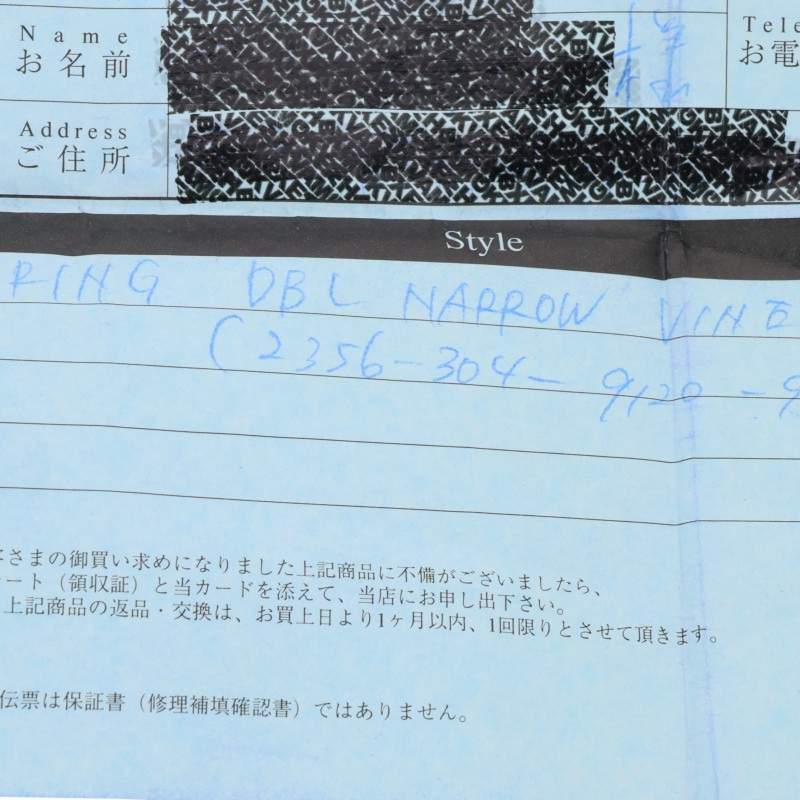 Name
お名前
様
Tele
お電
Address
ご住所
Style
RING DBL NARROW VINE
(2356-304-9120-9
さまの御買い求めになりました上記商品に不備がございましたら、
ート（領収証）と当カードを添えて、当店にお申し出下さい。
上記商品の返品・交換は、お買上日より1ヶ月以内、1回限りとさせて頂きます。
伝票は保証書（修理補填確認書）ではありません。